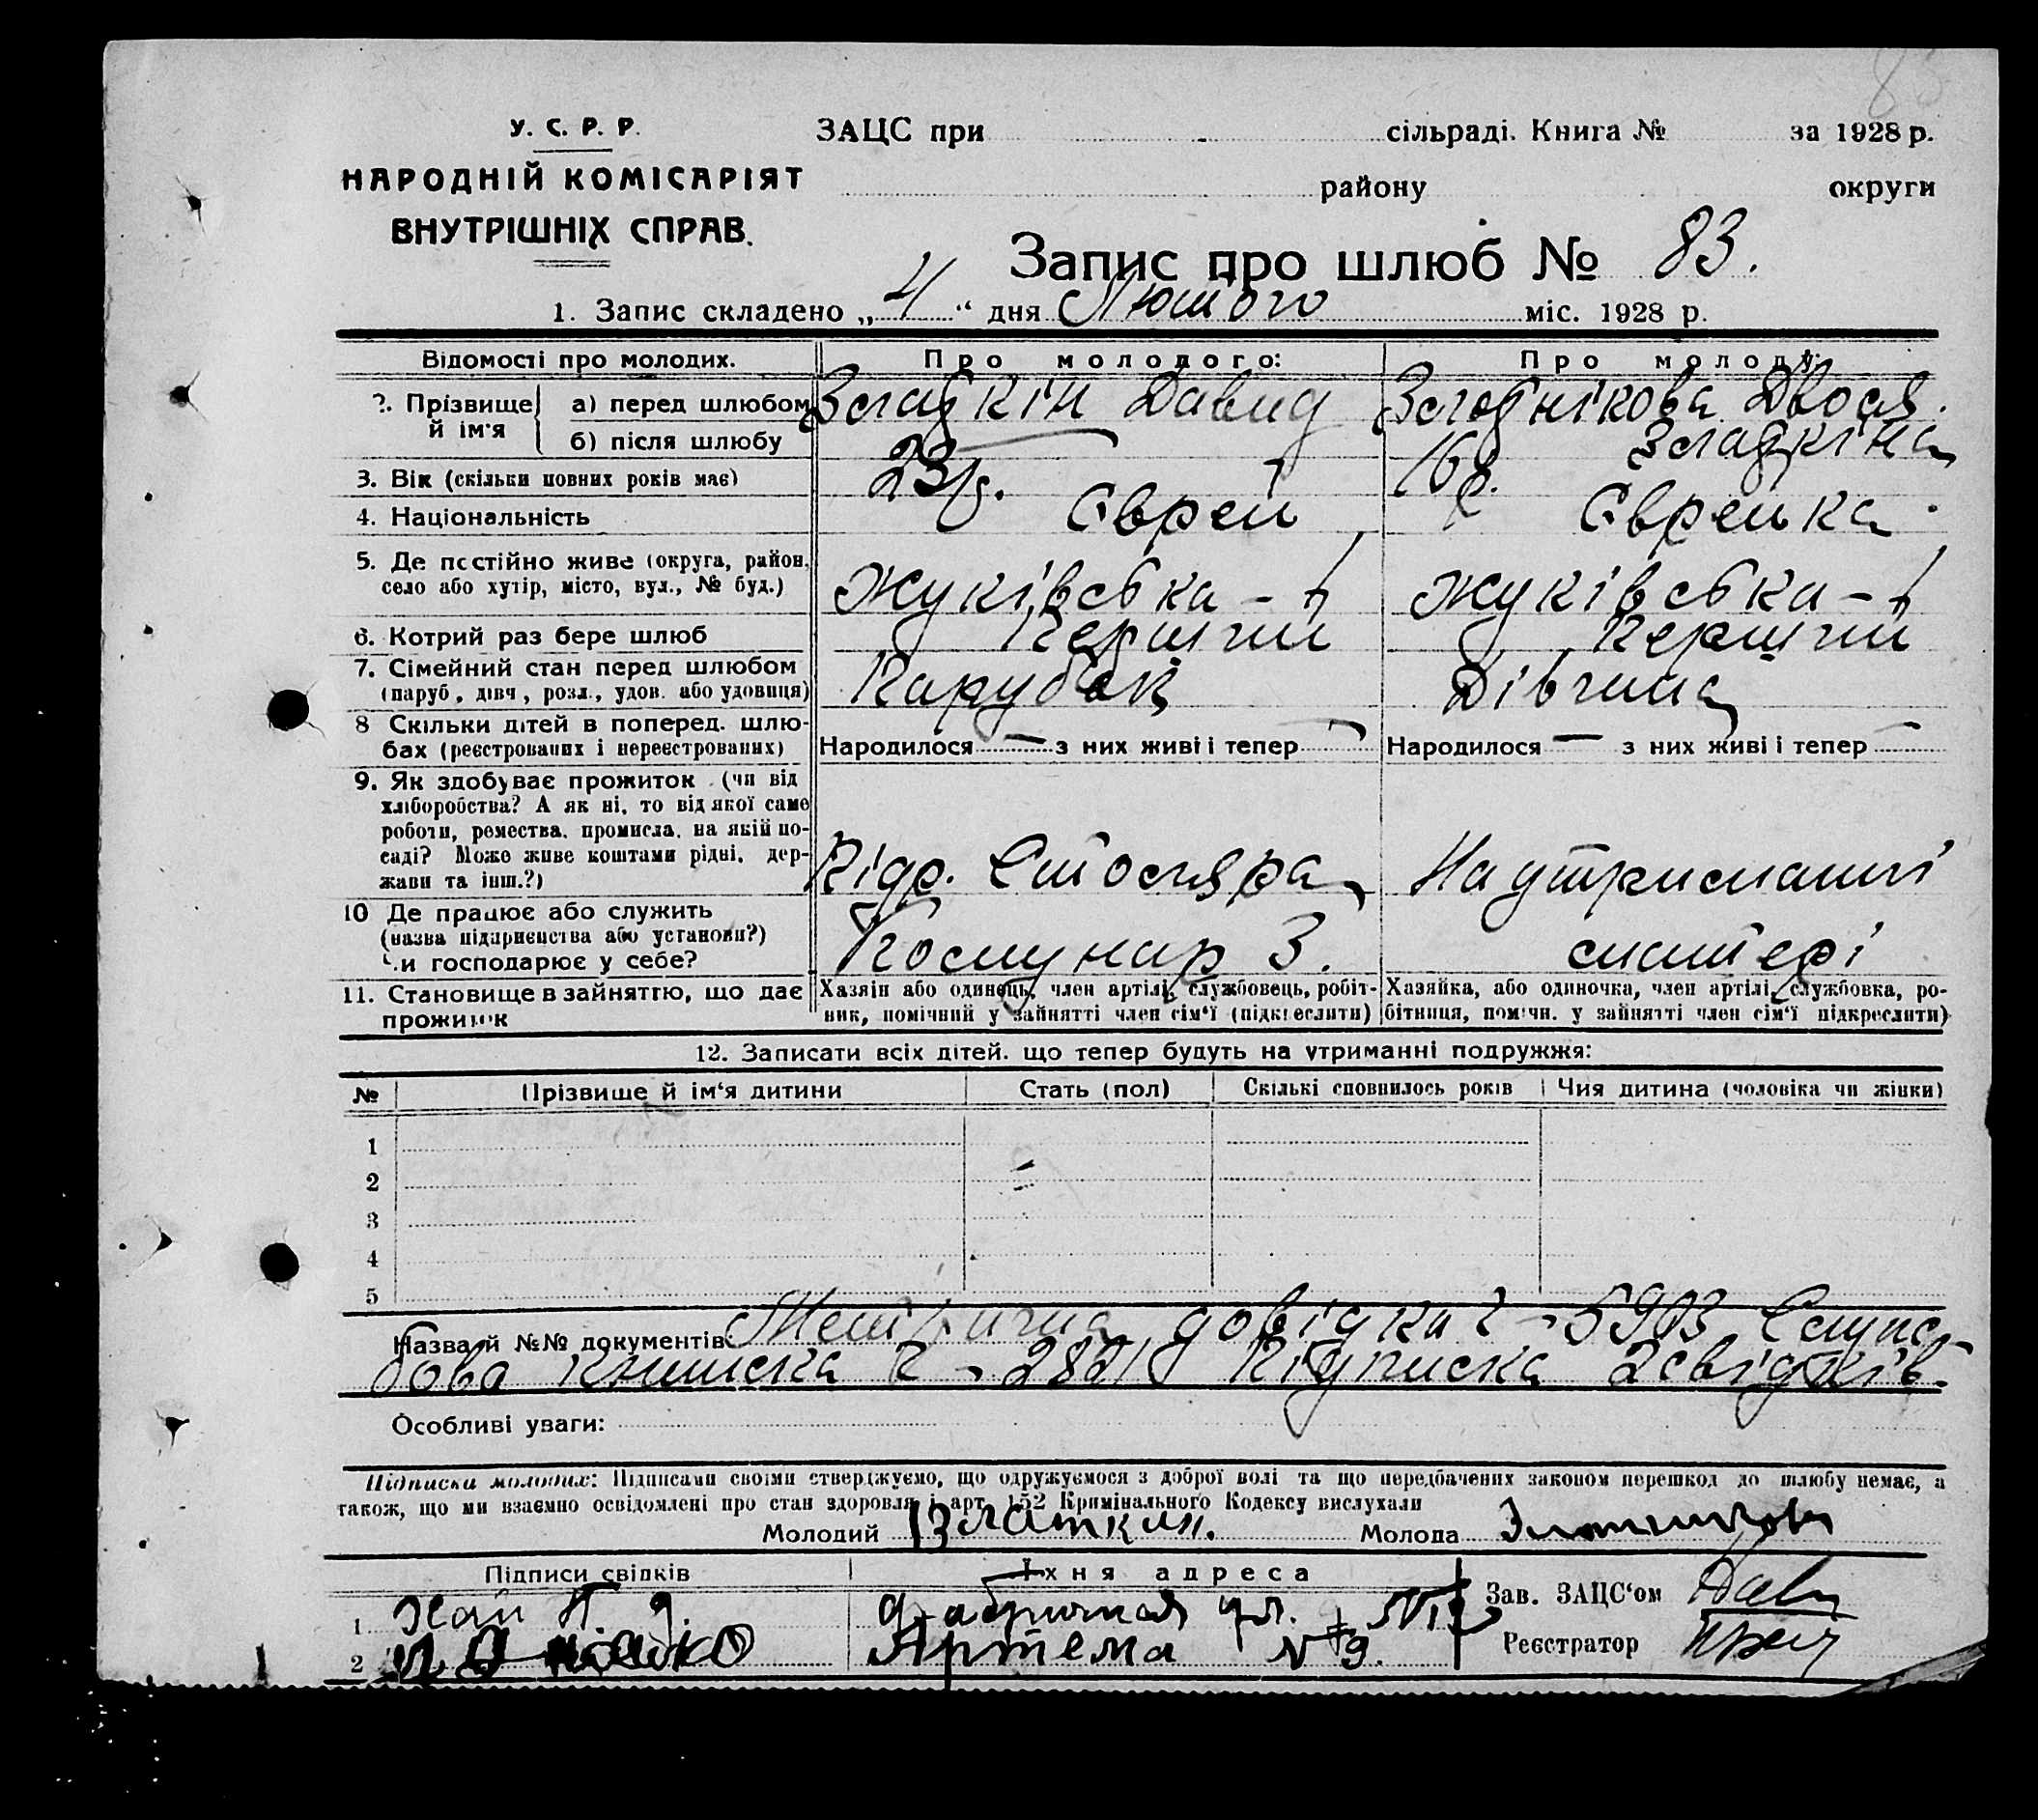 83
У. С. Р. Р.
НАРОДНІЙ КОМІСАРІЯТ
ВНУТРІШНІХ СПРАВ.
ЗАЦС при сільраді. Книга № за 1928 р.
району округи
Запис про шлюб № 83.
1. Запис складено „4“ дня Лютого міс. 1928 р.
Відомості про молодих. Про молодого: Про молоду:
2. Прізвище й ім'я а) перед шлюбом Зладкін Давид
б) після шлюбу Зладкіна
3. Вік (скільки повних років має) 23 р. 16 р.
4. Національність Єврей Єврейка.
5. Де постійно живе (округа, район, Жуківська - Жуківська -
село або хутір, місто, вул., № буд.)
6. Котрий раз бере шлюб Перший Перший
7. Сімейний стан перед шлюбом Парубок Дівчина
(паруб., дівч., розл., удов. або удовиця)
8 Скільки дітей в поперед. шлю-
бах (реєстрованих і нереєстрованих) Народилося — з них живі і тепер — Народилося — з них живі і тепер —
9. Як здобуває прожиток (чи від
хліборобства? А як ні, то від якої саме
роботи, ремества, промисла, на якій по-
саді? Може живе коштами рідні, дер-
жави та інш.?) Підр. Столяра На утриманні
10 Де працює або служить
(назва підприємства або установи?) Комунар 3. матері
Чи господарює у себе?
11. Становище в зайняттю, що дає
прожиток
Хазяін або одинець, член артілі, службовець, робіт-
ник, помічний у зайнятті член сім'ї (підкреслити)
Хазяйка, або одиночка, член артілі, службовка, ро-
бітниця, помічн. у зайнятті член сім'ї підкреслити)
12. Записати всіх дітей. що тепер будуть на утриманні подружжя:
№ Прізвище й ім'я дитини Стать (пол) Скількі сповнилось років Чия дитина (чоловіка чи жінки)
1
2
3
4
5
Назва й №№ документів: Метрична довідка 5903
книжка Підписка 2 свідків.
Особливі уваги:
Підписки молодих: Підписами своіми стверджуємо, що одружуємося з доброї волі та що передбачених законом перешкод до шлюбу немає, а
також, що ми взаємно освідомлені про стан здоровля і арт. 152 Кримінального Кодексу вислухали
Молодий Златкин. Молода
Підписи свідків Їхня адреса
1 Фабричная ул.
2 Артема № 9.
Зав. ЗАЦС'ом
Реєстратор